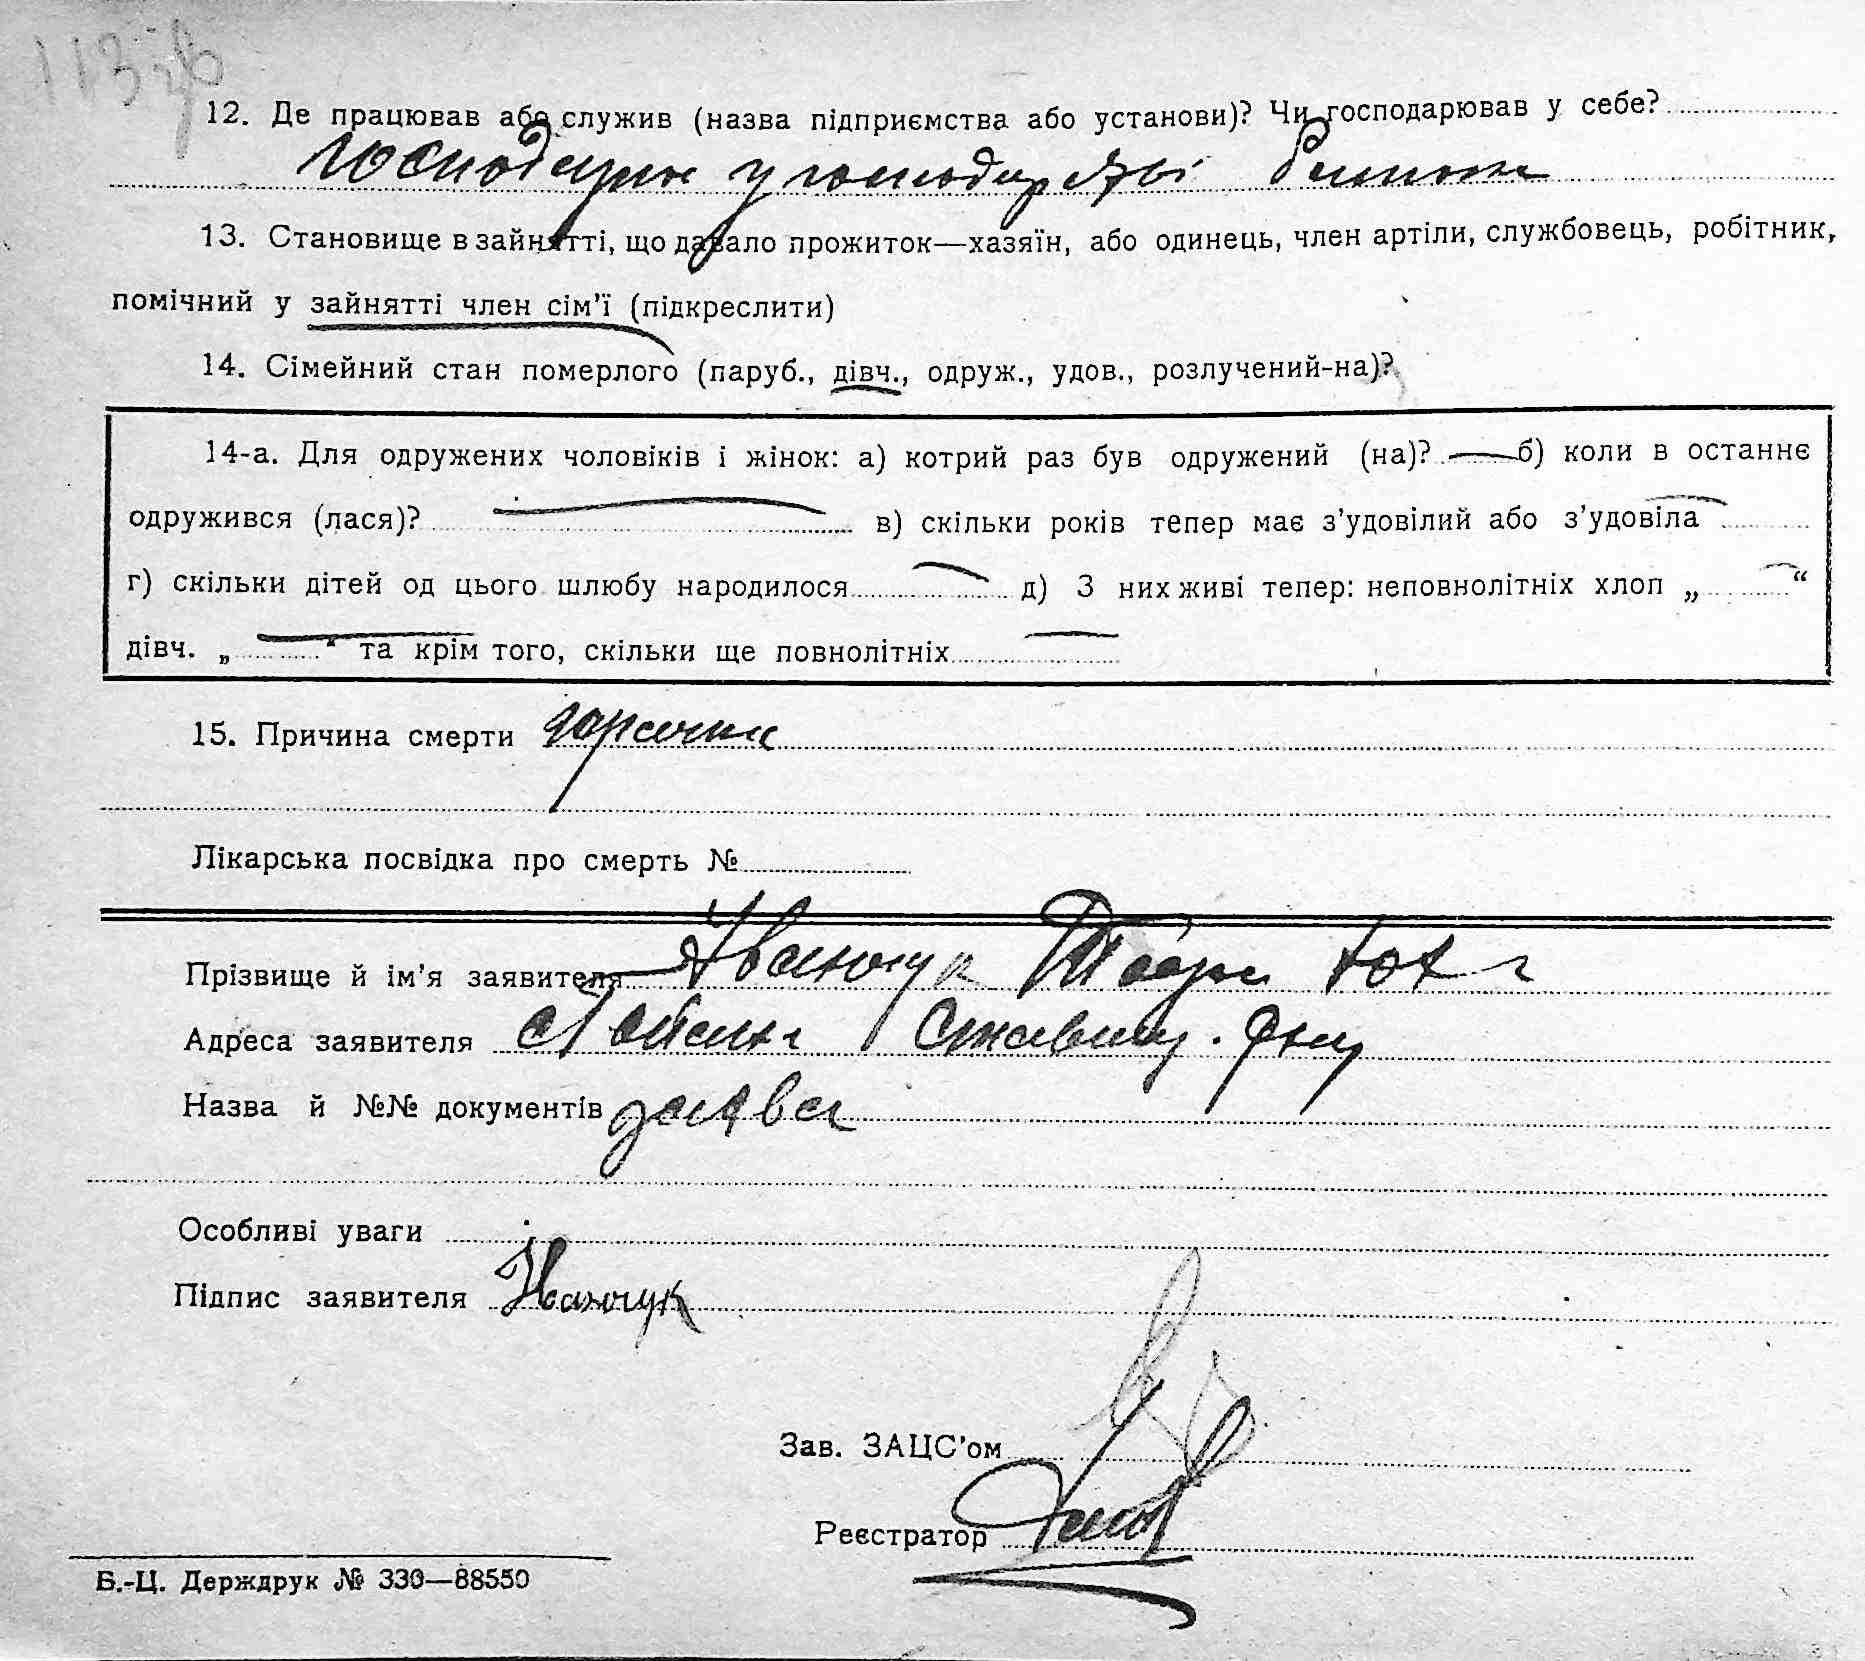 113
12. Де працював або служив (назва підприємства або установи)? Чи господарював у себе?
у господарстві
13. Становище в зайнятті, що давало прожиток—хазяїн, або одинець, член артіли, службовець, робітник,
помічний у зайнятті член сім’ї (підкреслити)
14. Сімейний стан померлого (паруб., дівч., одруж., удов., розлучений-на)?
14-а. Для одружених чоловіків і жінок: а) котрий раз був одружений (на)? — б) коли в останнє
одружився (лася)? — в) скільки років тепер має з’удовілий або з’удовіла —
г) скільки дітей од цього шлюбу народилося — д) З них живі тепер: неповнолітніх хлоп „ — “
дівч. „ — “ та крім того, скільки ще повнолітніх —
15. Причина смерти
Лікарська посвідка про смерть №
Прізвище й ім’я заявителя Иванчук
Адреса заявителя Ставищ. р-ну
Назва й №№ документів заява
Особливі уваги
Підпис заявителя Иванчук
Зав. ЗАЦС’ом
Реєстратор
Б.-Ц. Держдрук № 330—88550